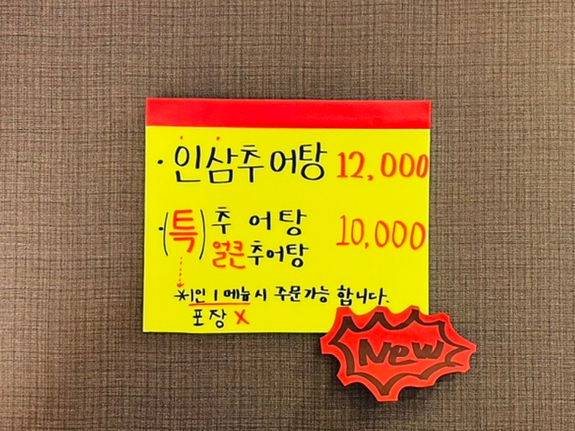 · 인삼추어탕 12,000
· (특) 추어탕 10,000
얼큰추어탕
*1인 1메뉴시 주문가능 합니다.
포장 X
New